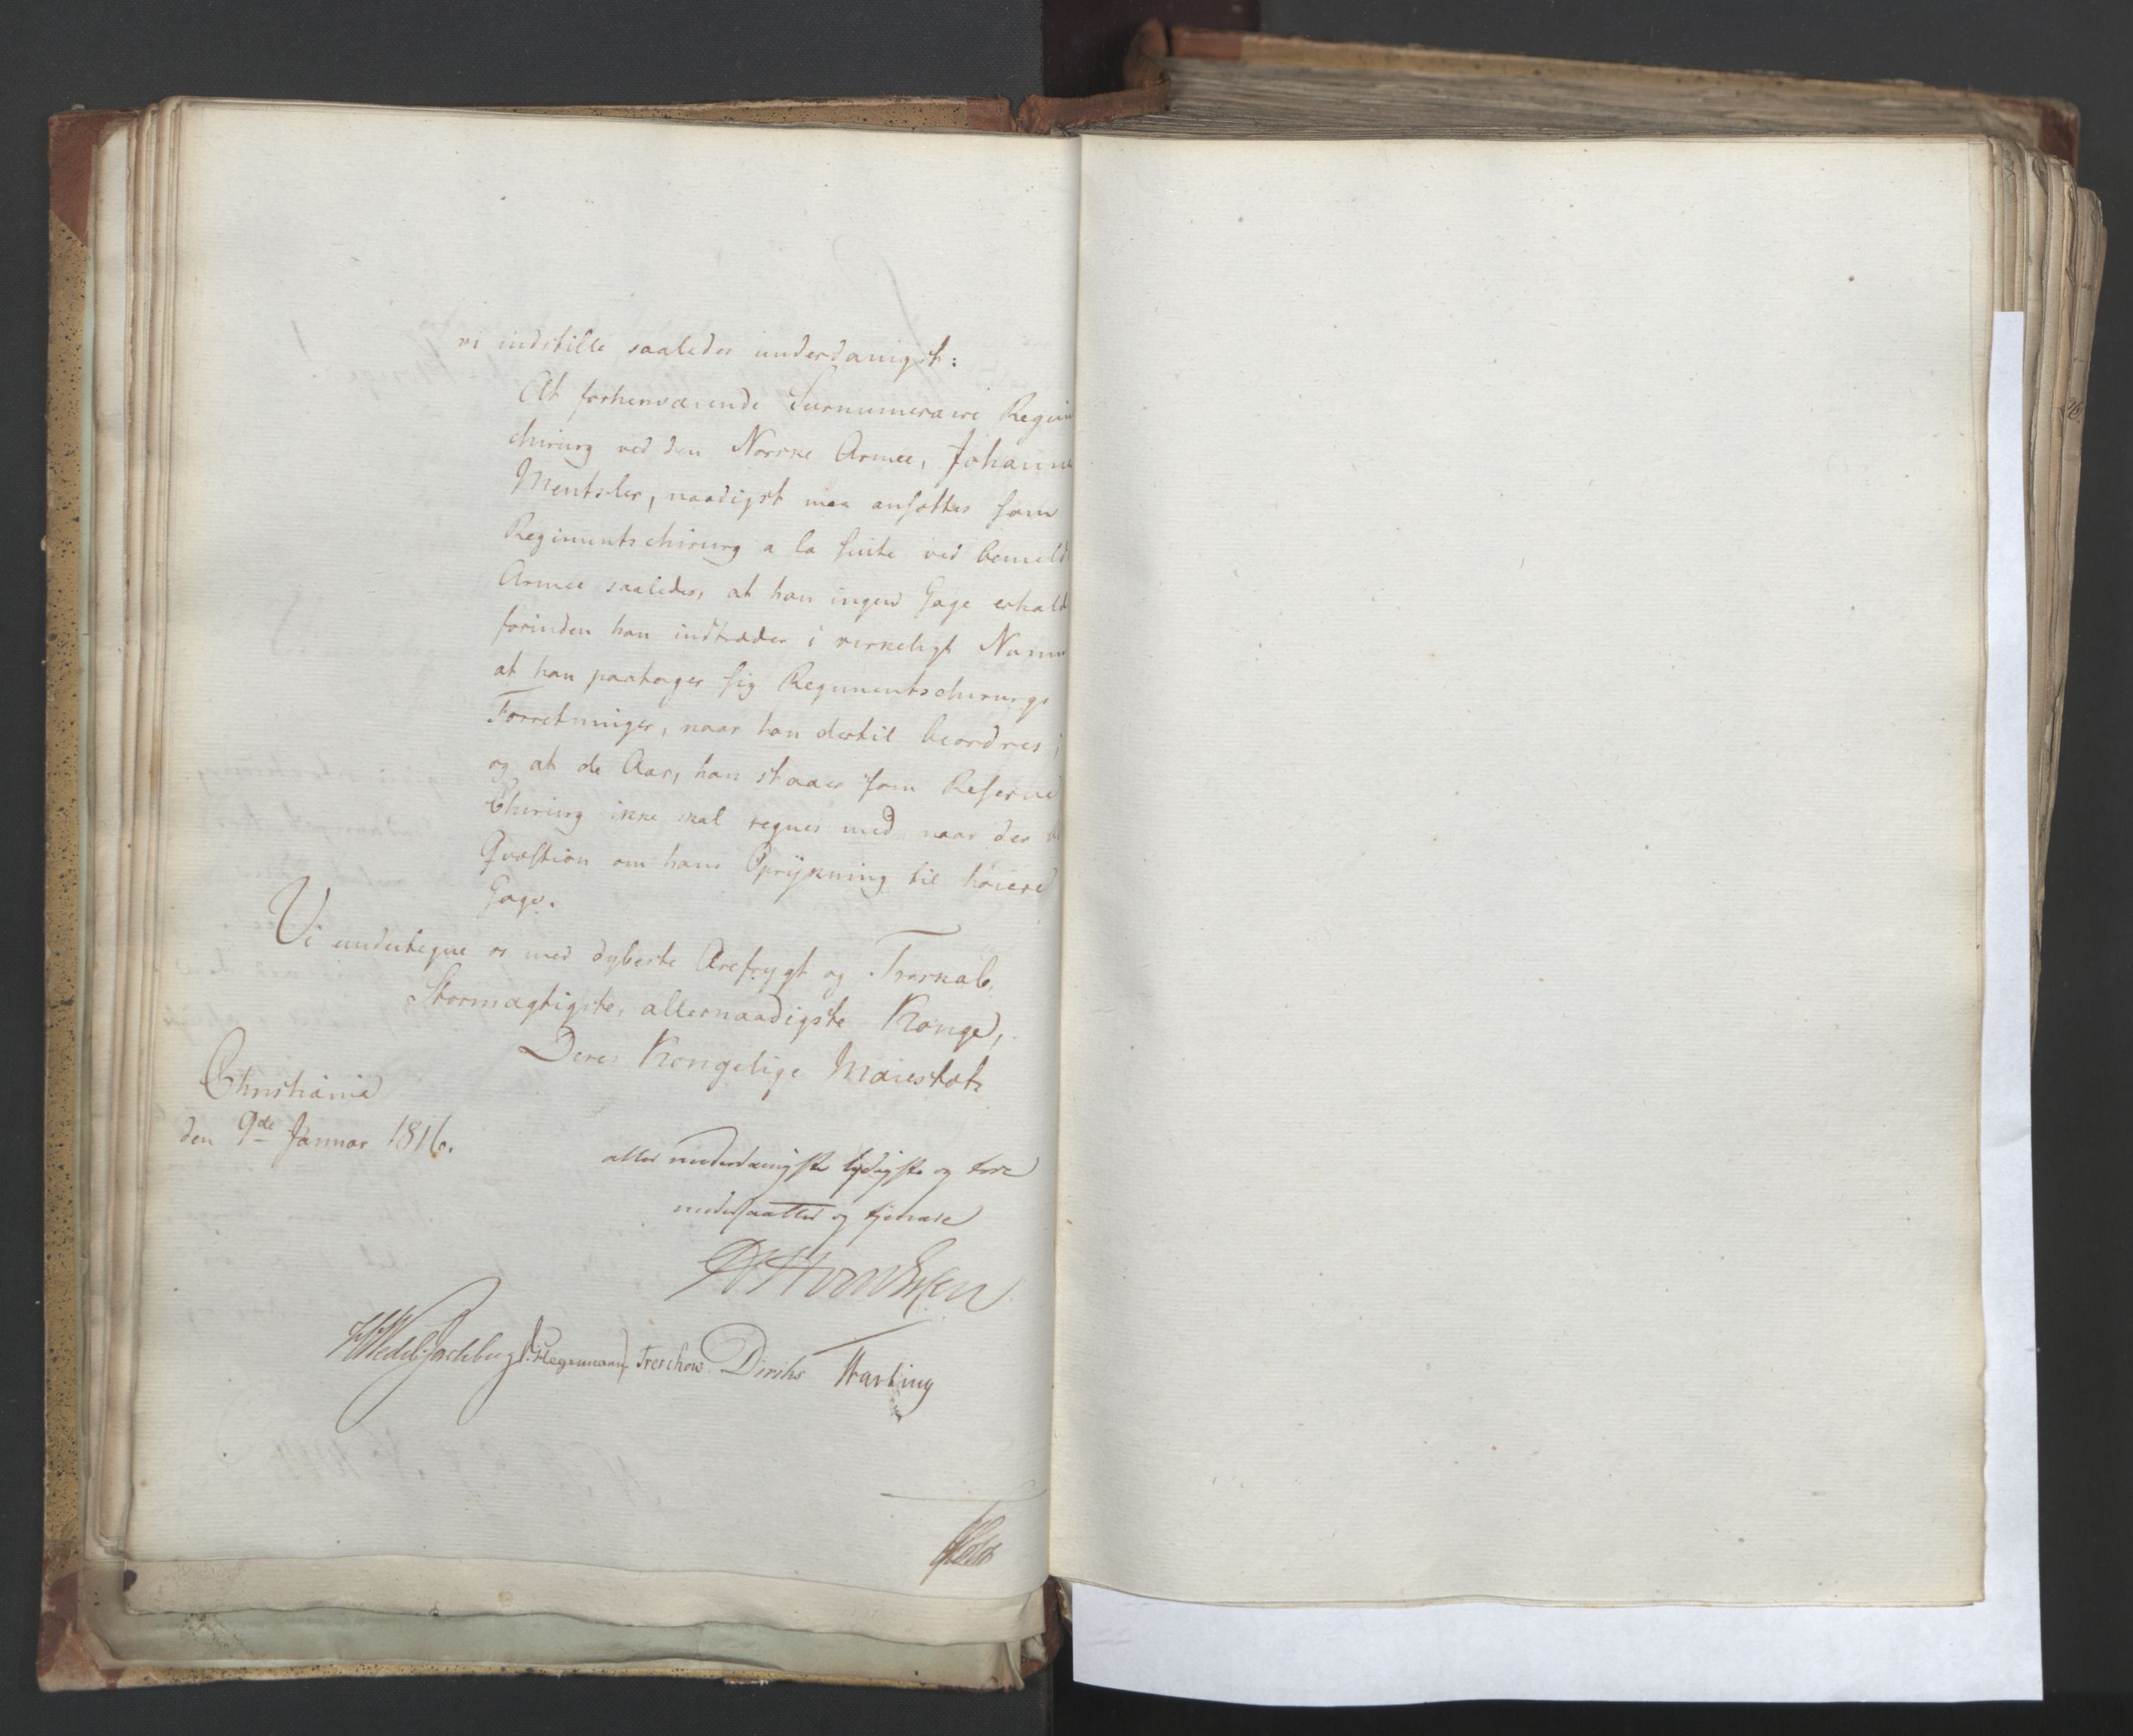 vi indstille saaledes underdanigst:
At forhenværende Surnumeraire Regim
chirurg ved den Norske Armee, Johanne
Mentzler, naadigst maa ansættes som
Regimentschirurg a la suite ved bemeld
Armee saaledes, at han ingen Gage erhald
forinden han indtræder i virkeligt Num
at han paatager sig Regimentschirurgs
Forretninger, naar han dertil beordres;
og at de Aar, han staaer som Reserve
Chirurg ikke skal regnes med naar der
Qvæstion om hans Oprykning til høiere
Gage.
Vi undertegne os med dybeste Ærefrygt og Troskab,
Stormægtigste, allernaadigste Konge,
Deres Kongelige Maiestæts
Christiania
den 9de Januar 1816.
aller underdanigste lydigste og troe
undersaatter og tjenere
Hegermann Treschow Diriks